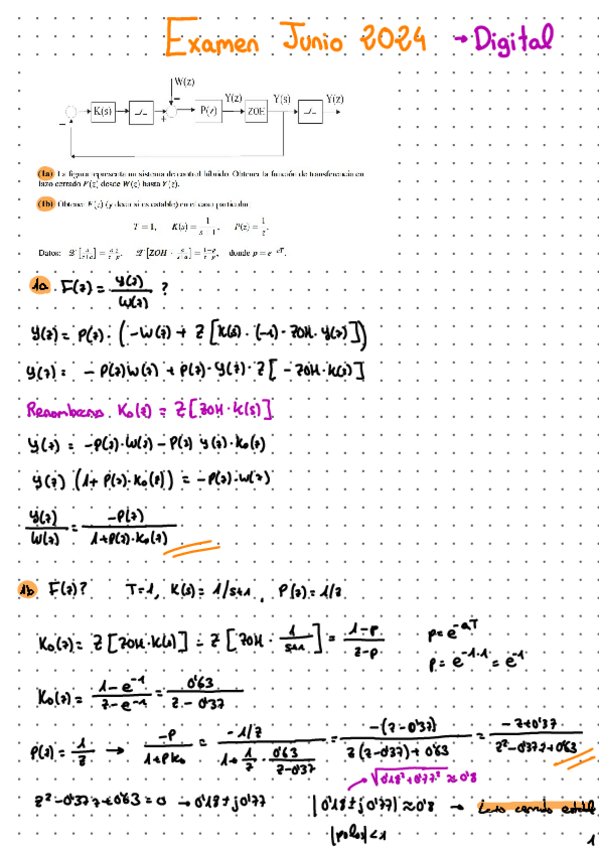 Examen Junio 2024 → Digital
W(z)
K(s) P(z) Y(z) ZOH Y(s) Y(z)
(1a) La figura representa un sistema de control híbrido. Obtener la función de transferencia en
lazo cerrado F(z) desde W(z) hasta Y(z).
(1b) Obtener F(z) (y decir si es estable) en el caso particular
T = 1, K(s) = 1/(s+1), P(z) = 1/z.
Datos: donde p = e^-aT.
1a. F(z) = Y(z)/W(z) ?
Y(z) = P(z) · (-W(z) + Z[K(s) · (-1) · ZOH · Y(z)])
Y(z) = - P(z)W(z) + P(z) · Y(z) · Z[- ZOH · K(s)]
Renombramos K₀(z) = Z[ZOH · K(s)]
Y(z) = -P(z) · W(z) - P(z) Y(z) · K₀(z)
Y(z) (1 + P(z) · K₀(z)) = -P(z) · W(z)
Y(z)/W(z) = -P(z)/(1+P(z) · K₀(z))
1b F(z)? T=1, K(s) = 1/s+1, P(z) = 1/z
K₀(z) = Z[ZOH · K(s)] = Z[ZOH · 1/(s+1)] = (1-p)/(z-p) p = e^-aT
p = e^-1·1 = e^-1
K₀(z) = (1-e^-1)/(z-e^-1) = 0'63/(z-0'37)
P(z) = 1/z → -P/(1+PK₀) = (-1/z)/(1+1/z · 0'63/(z-0'37)) = -(z-0'37)/(z(z-0'37)+0'63) = (-z+0'37)/(z²-0'37z+0'63)
√(0'18²+0'77²) ≈ 0'8
z²-0'37z+0'63=0 → 0'18±j0'77 |0'18±j0'77| ≈ 0'8 → Lazo cerrado estable
|polos|<1
1